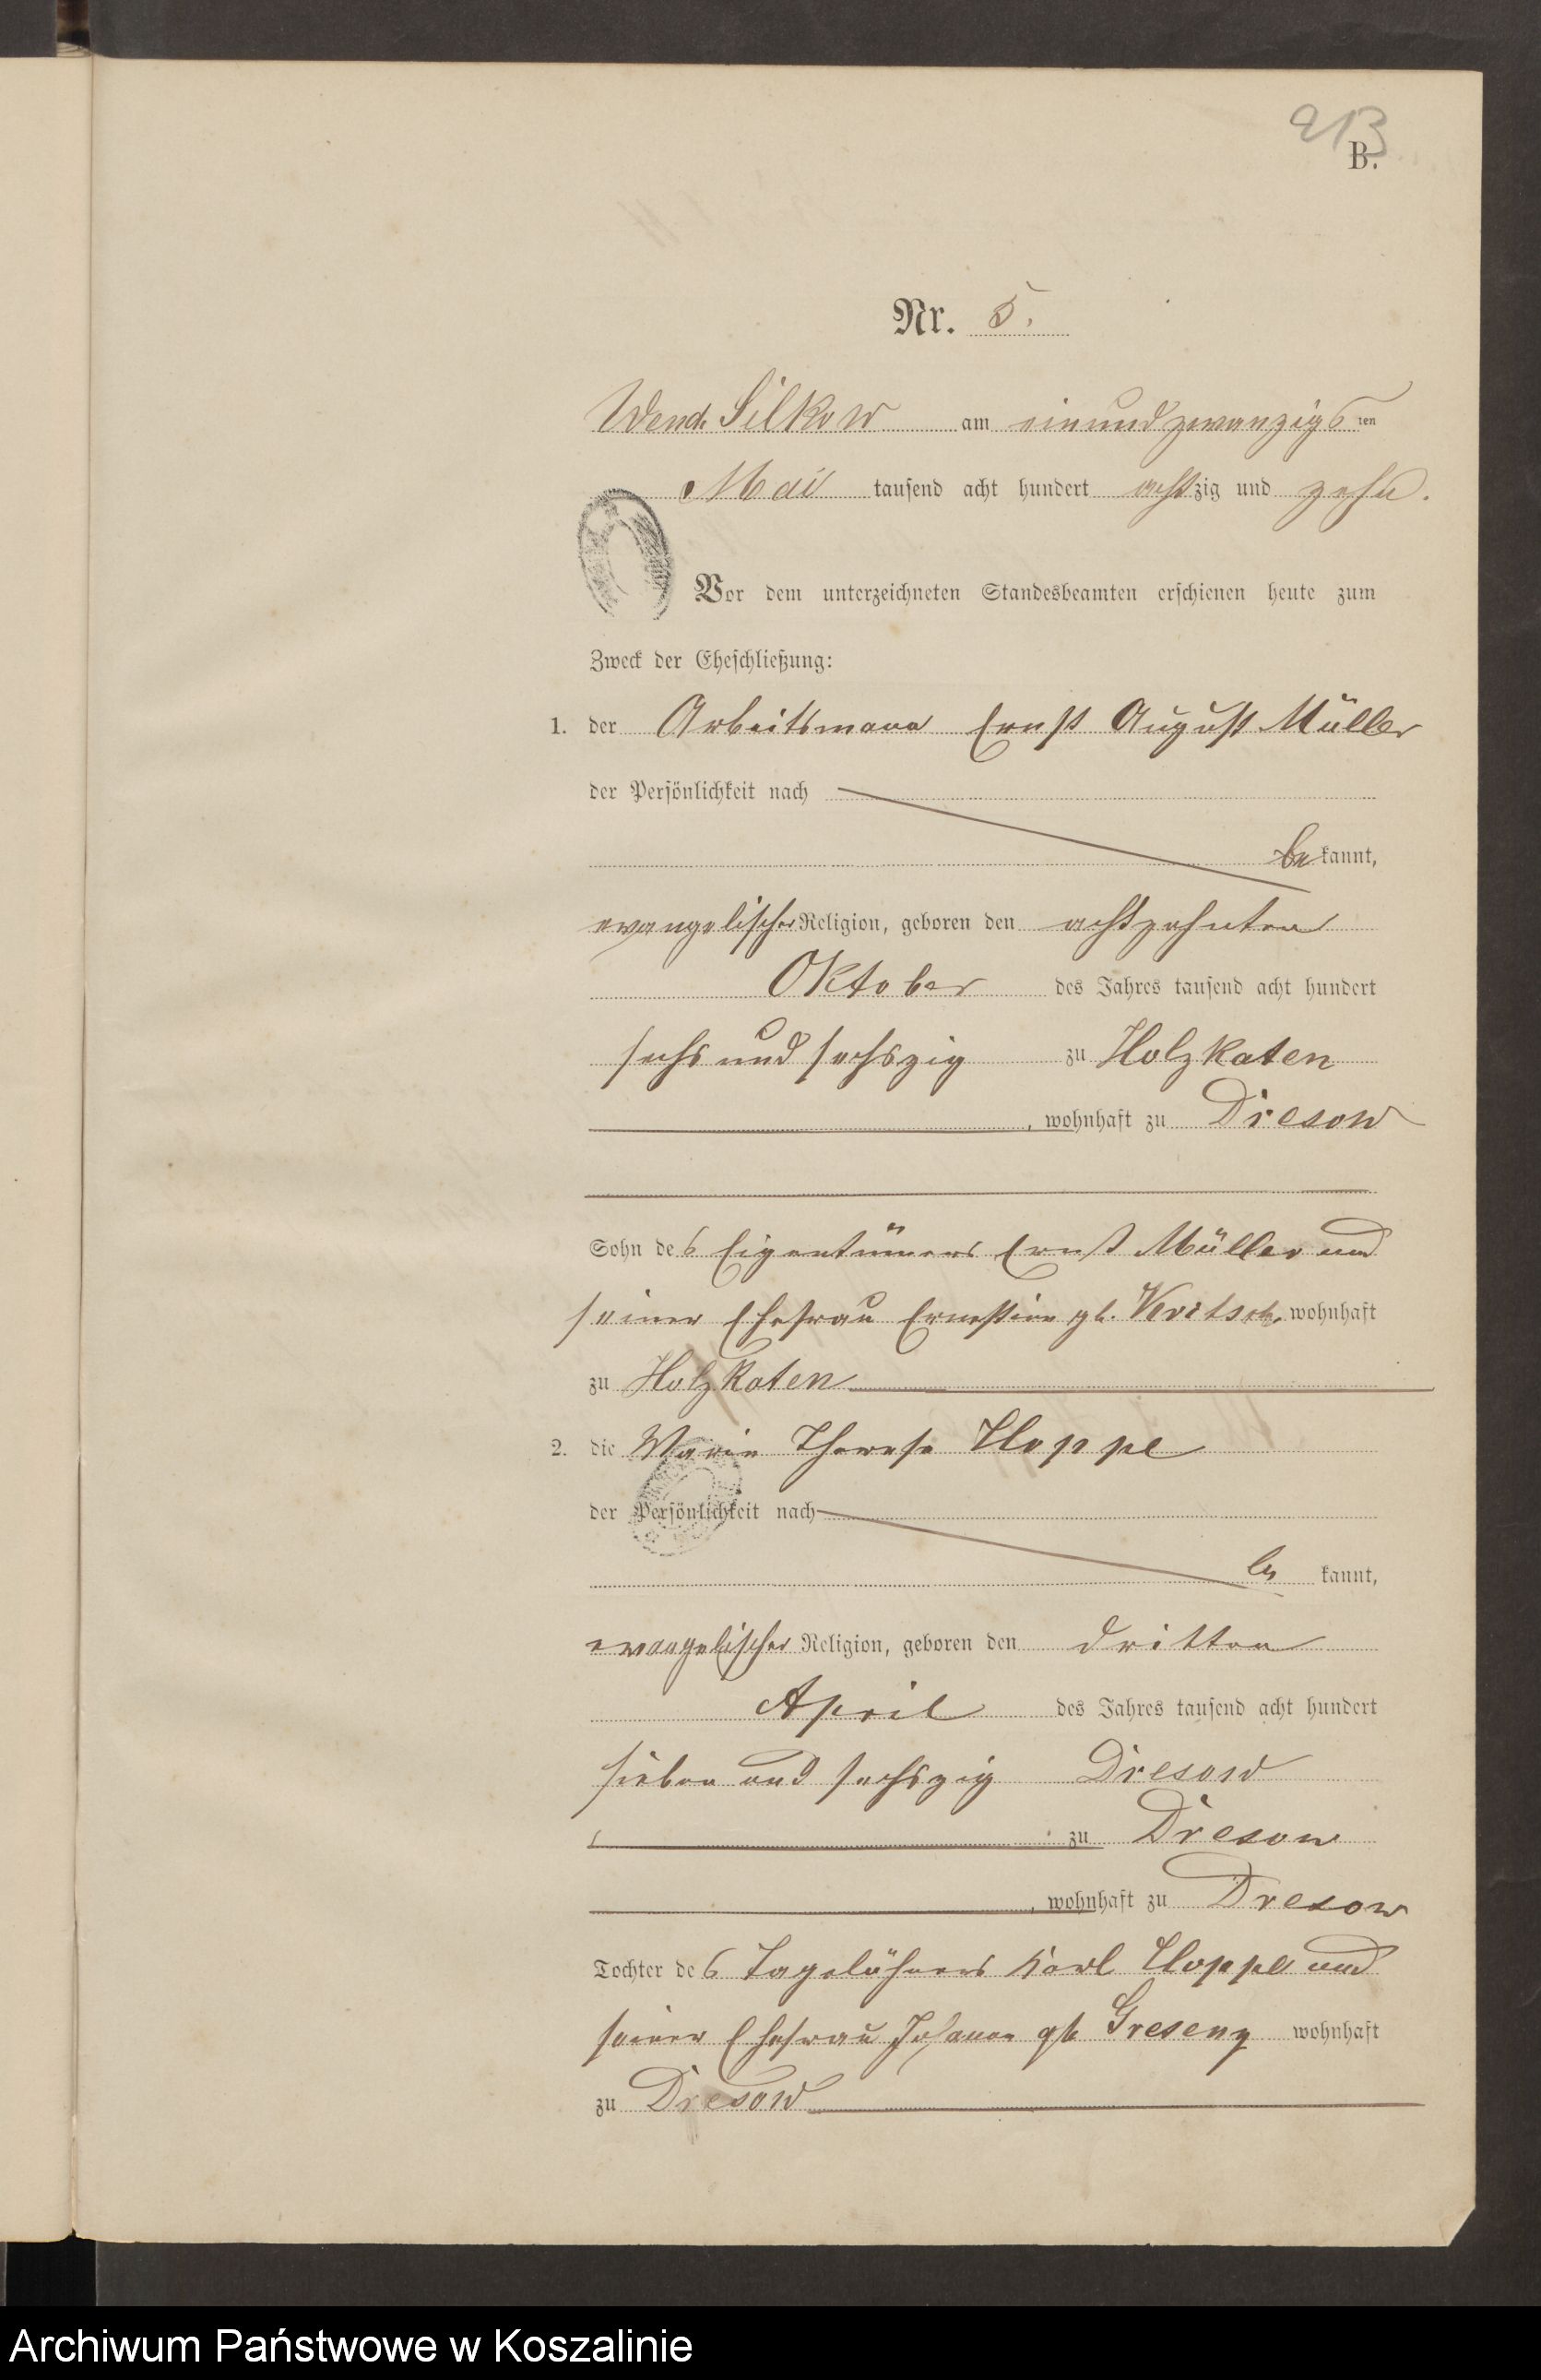 213
B.
Nr. 5.
Wend. Silkow am einundzwanzigsten
Mai tausend acht hundert achtzig und zehn.
Vor dem unterzeichneten Standesbeamten erschienen heute zum
Zweck der Eheschließung:
1. der Arbeitsmann Ernst August Müller
der Persönlichkeit nach
be kannt,
evangelischer Religion, geboren den achtzehnten
Oktober des Jahres tausend acht hundert
sechs und sechszig zu Holzkaten
, wohnhaft zu Dresow
Sohn des Eigentümers Ernst Müller und
seiner Ehefrau Ernestine gb. wohnhaft
zu Holzkaten
2. die Marie Therese Hoppe
der Persönlichkeit nach
be kannt,
evangelischer Religion, geboren den dritten
April des Jahres tausend acht hundert
sieben und sechszig Dresow
zu Dresow
, wohnhaft zu Dresow
Tochter des Tagelöhners Karl Hoppe und
seiner Ehefrau Johanne gb. Greseny wohnhaft
zu Dresow
Archiwum Państwowe w Koszalinie